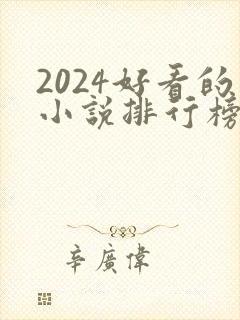 2024好看的
小說排行榜
辛廣偉